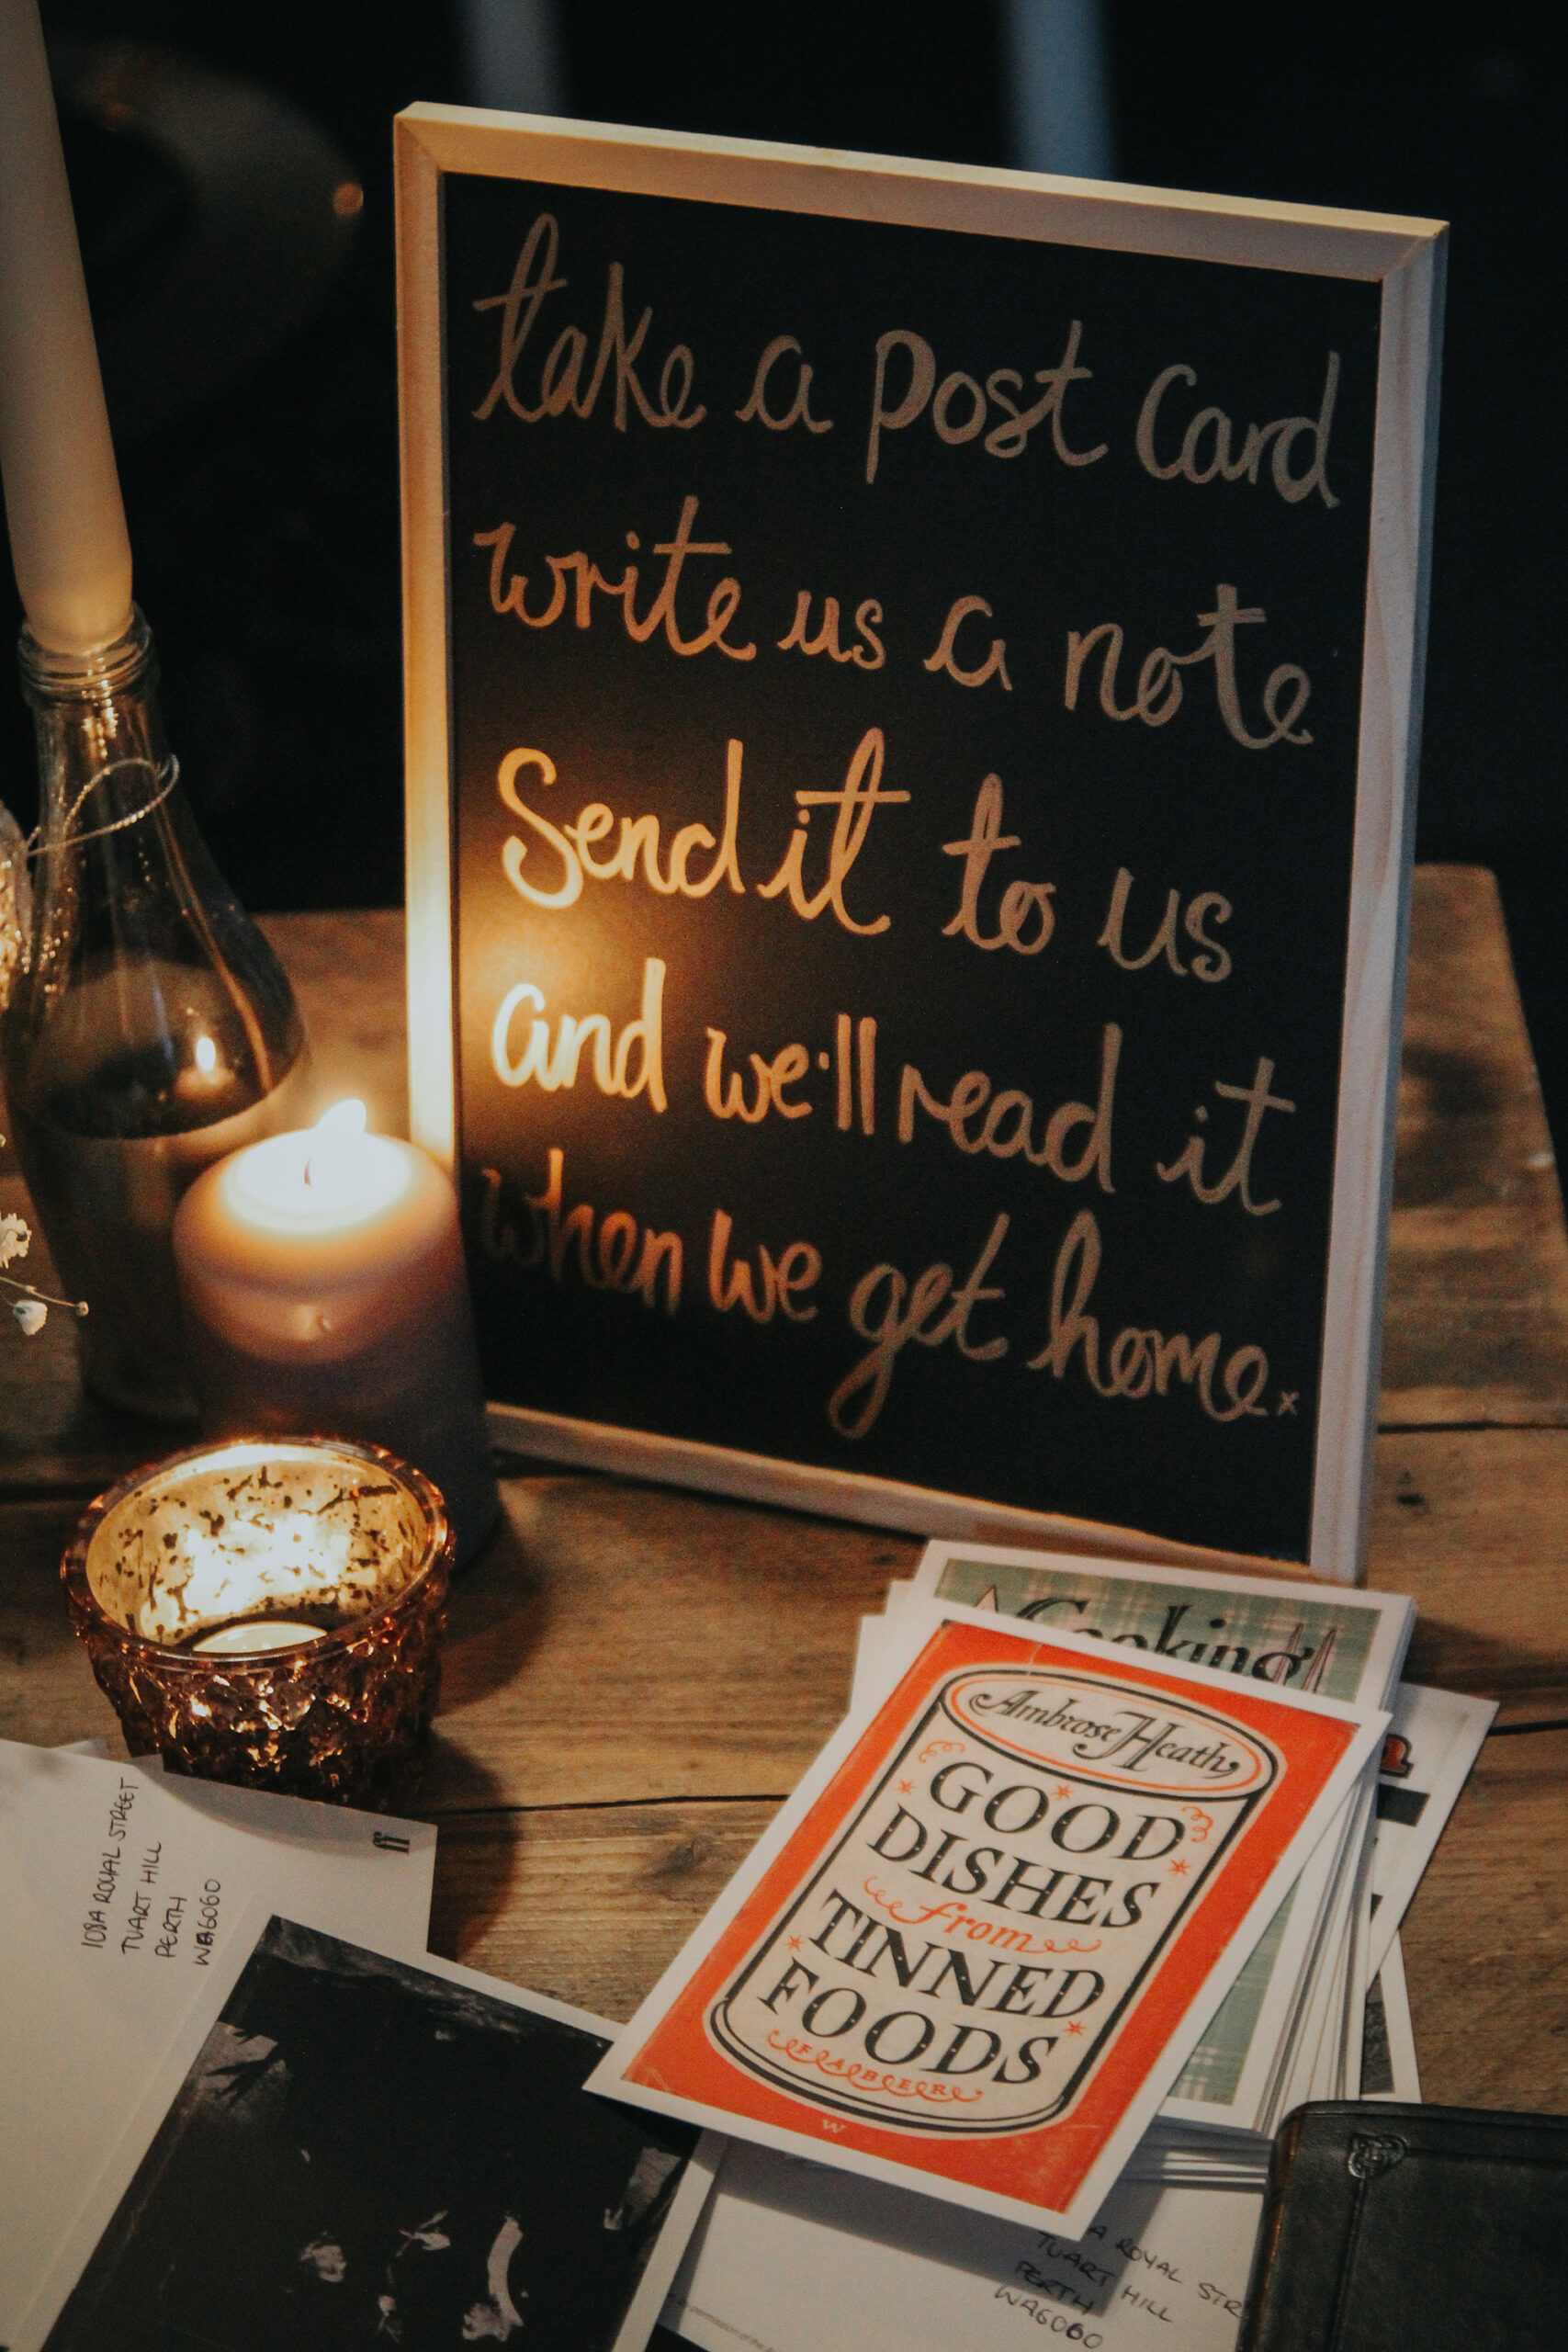 take a post card
write us a note
Send it to us
and we'll read it
when we get home.x
Cooking
Ambrose Heath
GOOD
DISHES
from
TINNED
FOODS
FABER
W
ff
108A ROYAL STREET
TUART HILL
PERTH
WA6060
A ROYAL STR
TUART HILL
PERTH
WA6060